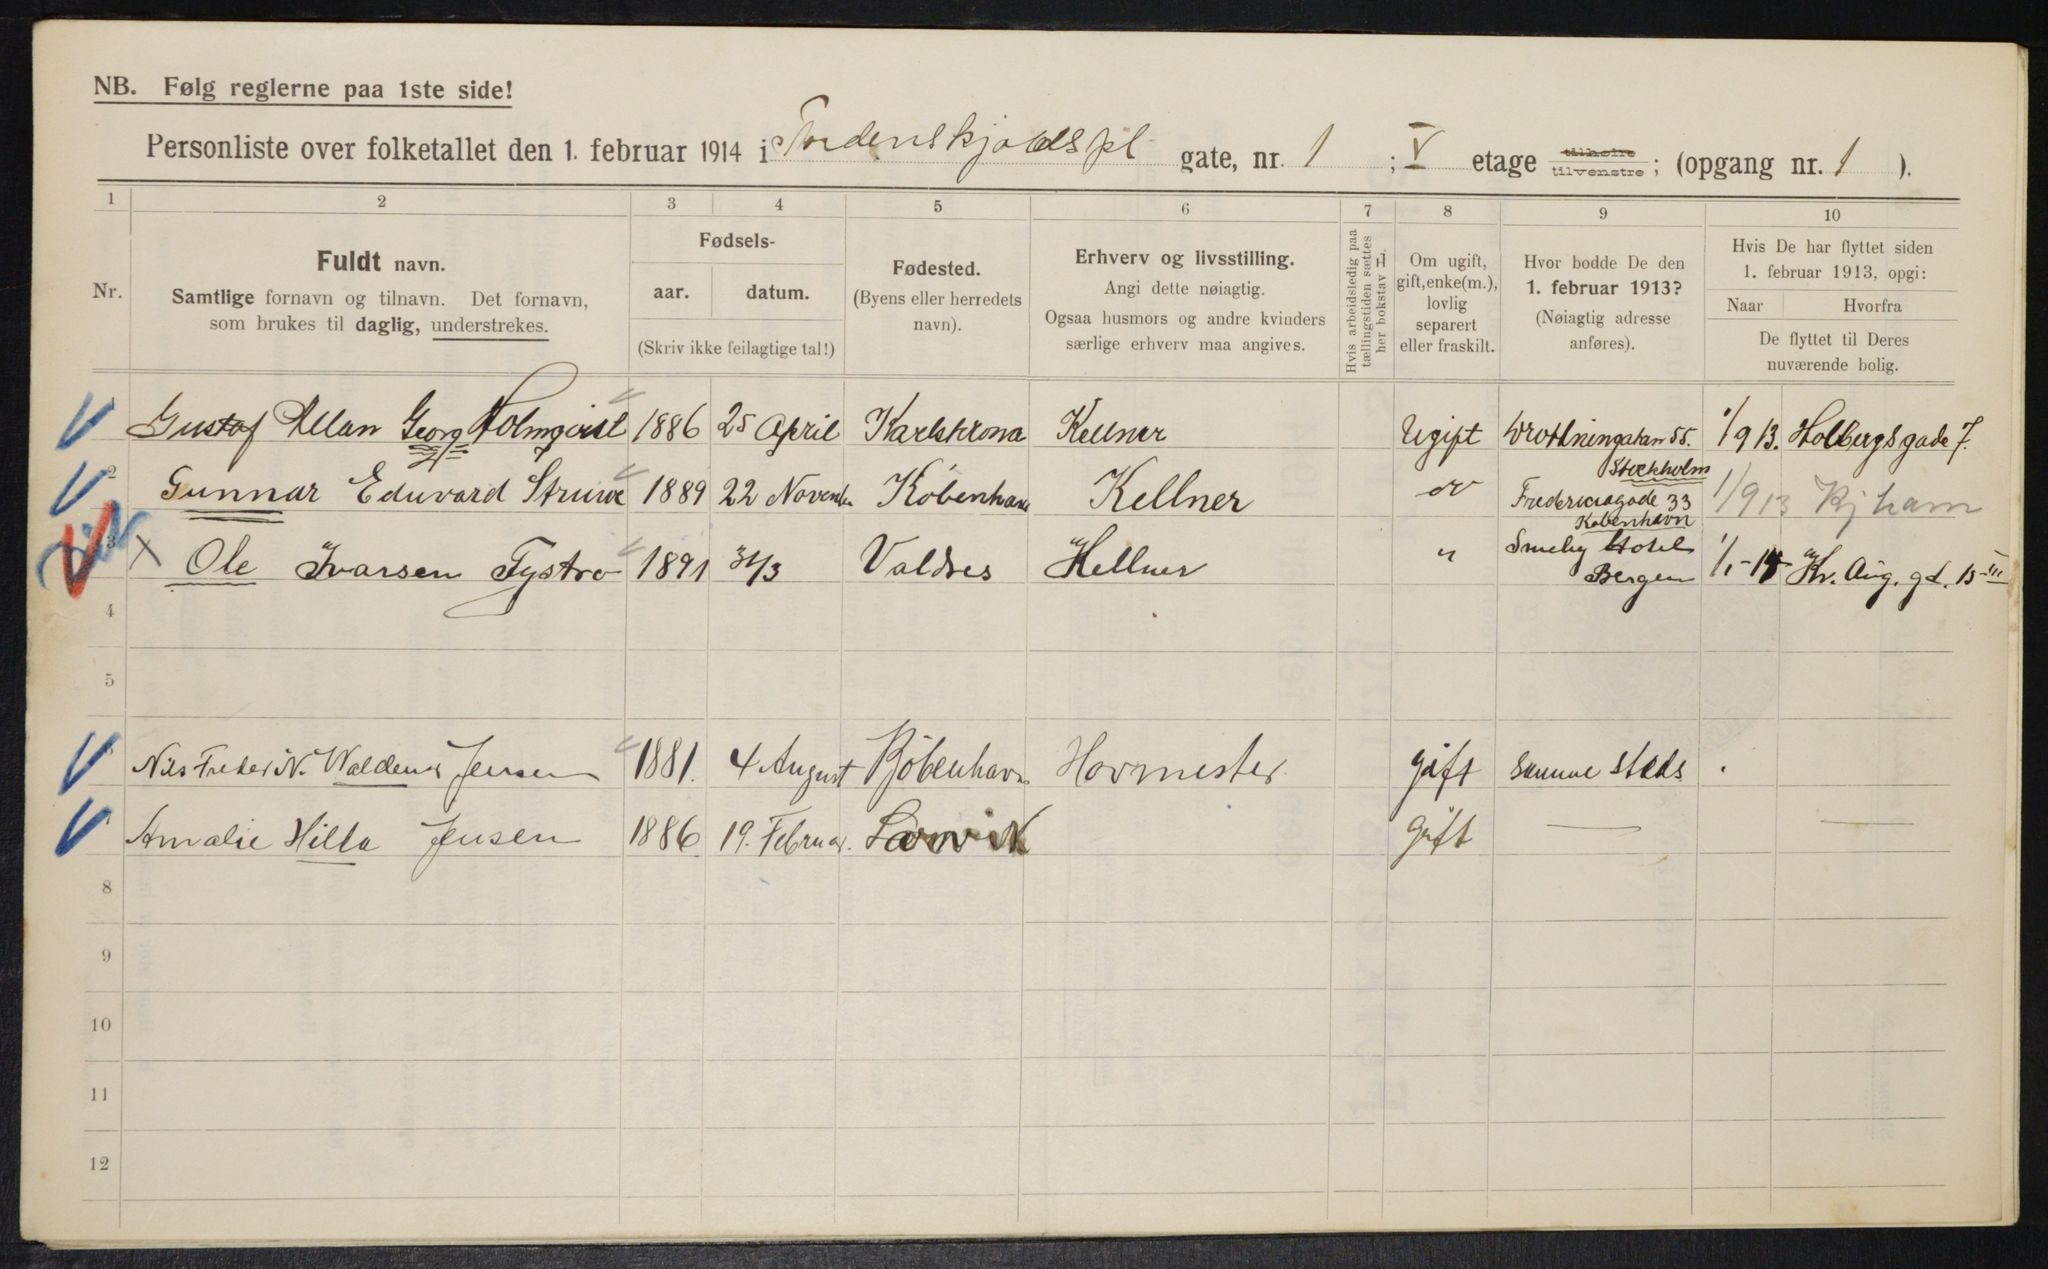 NB. Følg reglerne paa 1ste side!
Personliste over folketallet den 1. februar 1914 i Tordenskjoldspl. gate, nr. 1 ; V etage tilhøire tilvenstre ; (opgang nr. 1 ).
1 2 3 4 5 6 7 8 9 10
Nr.
Fuldt navn.
Samtlige fornavn og tilnavn. Det fornavn,
som brukes til daglig, understrekes.
Fødsels-
aar. datum.
(Skriv ikke feilagtige tal!)
Fødested.
(Byens eller herredets
navn).
Erhverv og livsstilling.
Angi dette nøiagtig.
Ogsaa husmors og andre kvinders
særlige erhverv maa angives.
Hvis arbeidsledig paa
tællingstiden sættes
her bokstav L.
Om ugift,
gift, enke(m.),
lovlig
separert
eller fraskilt.
Hvor bodde De den
1. februar 1913?
(Nøiagtig adresse
anføres).
Hvis De har flyttet siden
1. februar 1913, opgi:
Naar Hvorfra
De flyttet til Deres
nuværende bolig.
Gustaf Allan Georg Holmqvist 1886 25 April Karlskrona Kellner Ugift Drottningatan 55. Stockholm 1/9 13. Holbergsgade 7.
2 Gunnar Eduvard Struwe 1889 22 Novemb København Kellner do Fredericiagade 33 København 1/9 13 Kjham
3 X Ole Ivarsen Tystro 1891 31/3 Valdres Kellner " Smeby Hotel Bergen 1/1-14 Kr. Aug. gd. 15 III
4
5
Nils Freder N. Waldemar Jensen 1881. 4 August Kjøbenhavn Hovmester gift samme steds
Amalie Hilda Jensen 1886 19. Februar. Larvik gift
8
9
10
11
12